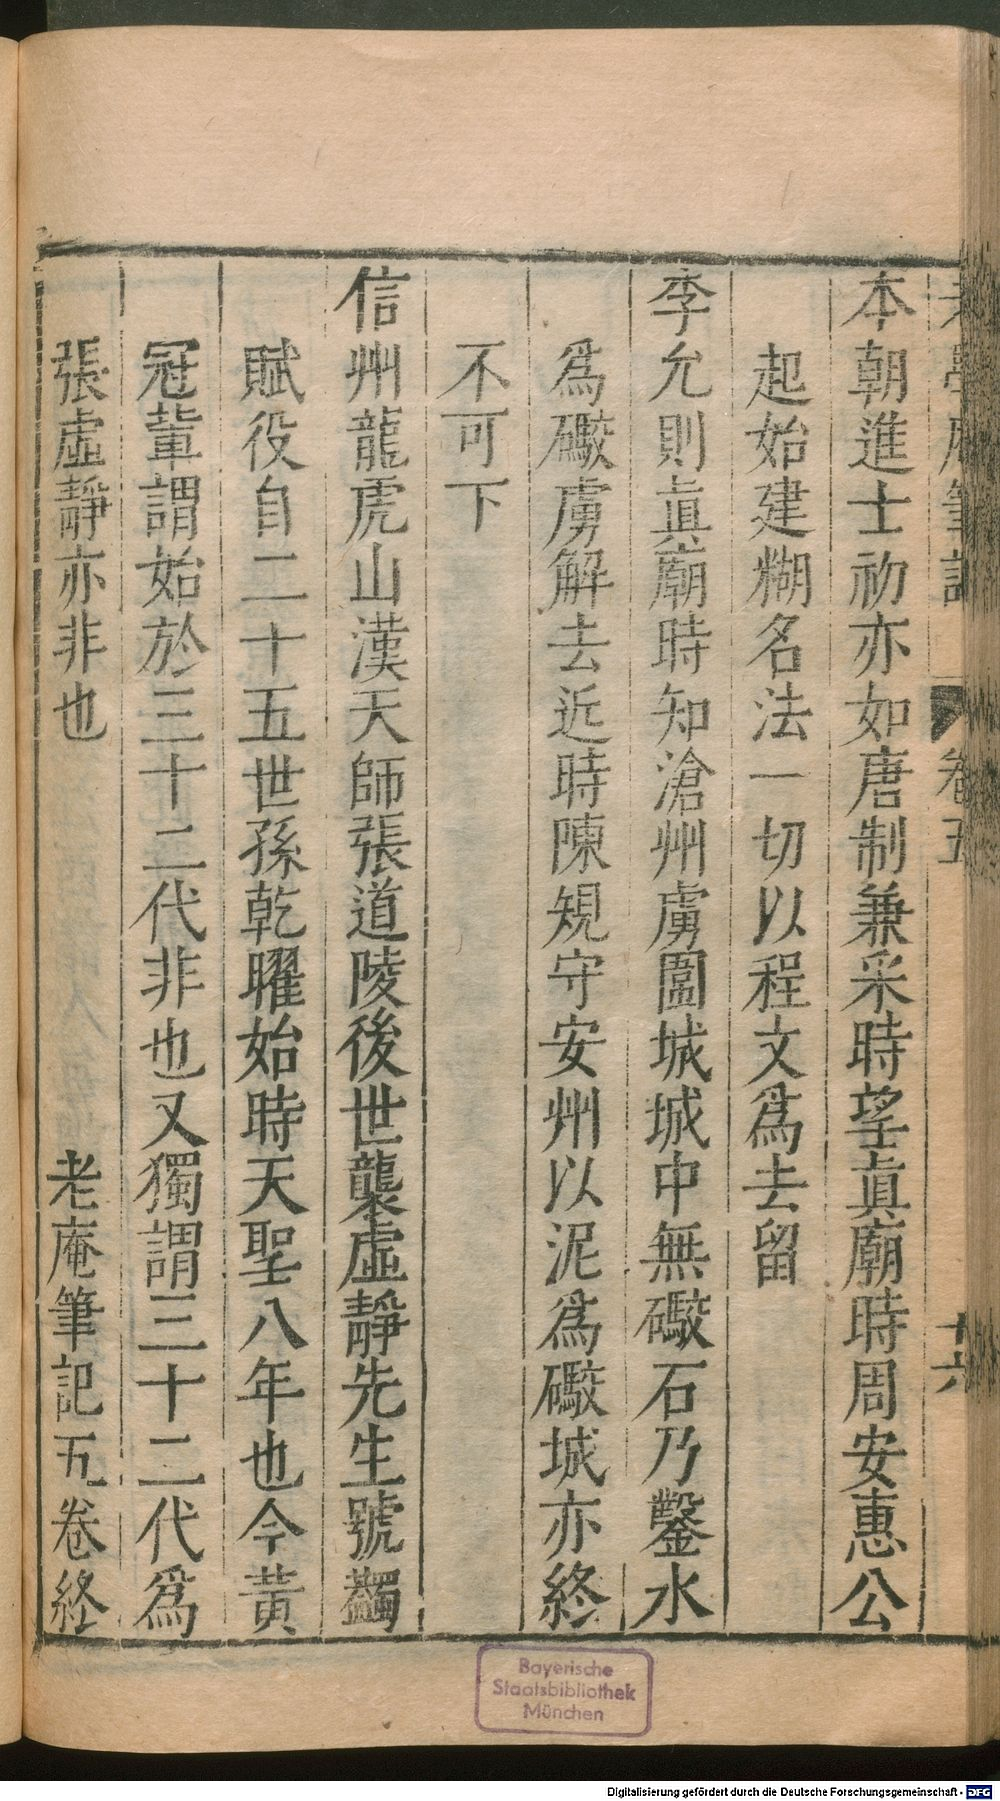 老學庵筆記 卷五 十六
本朝進士初亦如唐制兼采時望眞廟時周安惠公
起始建糊名法一切以程文爲去留
李允則眞廟時知滄州虜圍城城中無礮石乃鑿冰
爲礮虜解去近時陳規守安州以泥爲礮城亦終
不可下
信州龍虎山漢天師張道陵後世襲虛靜先生號蠲
賦役自二十五世孫乾曜始時天聖八年也今黃
冠輩謂始於三十二代非也又獨謂三十二代爲
張虛靜亦非也 老庵筆記五卷終
Bayerische
Staatsbibliothek
München
Digitalisierung gefördert durch die Deutsche Forschungsgemeinschaft - DFG